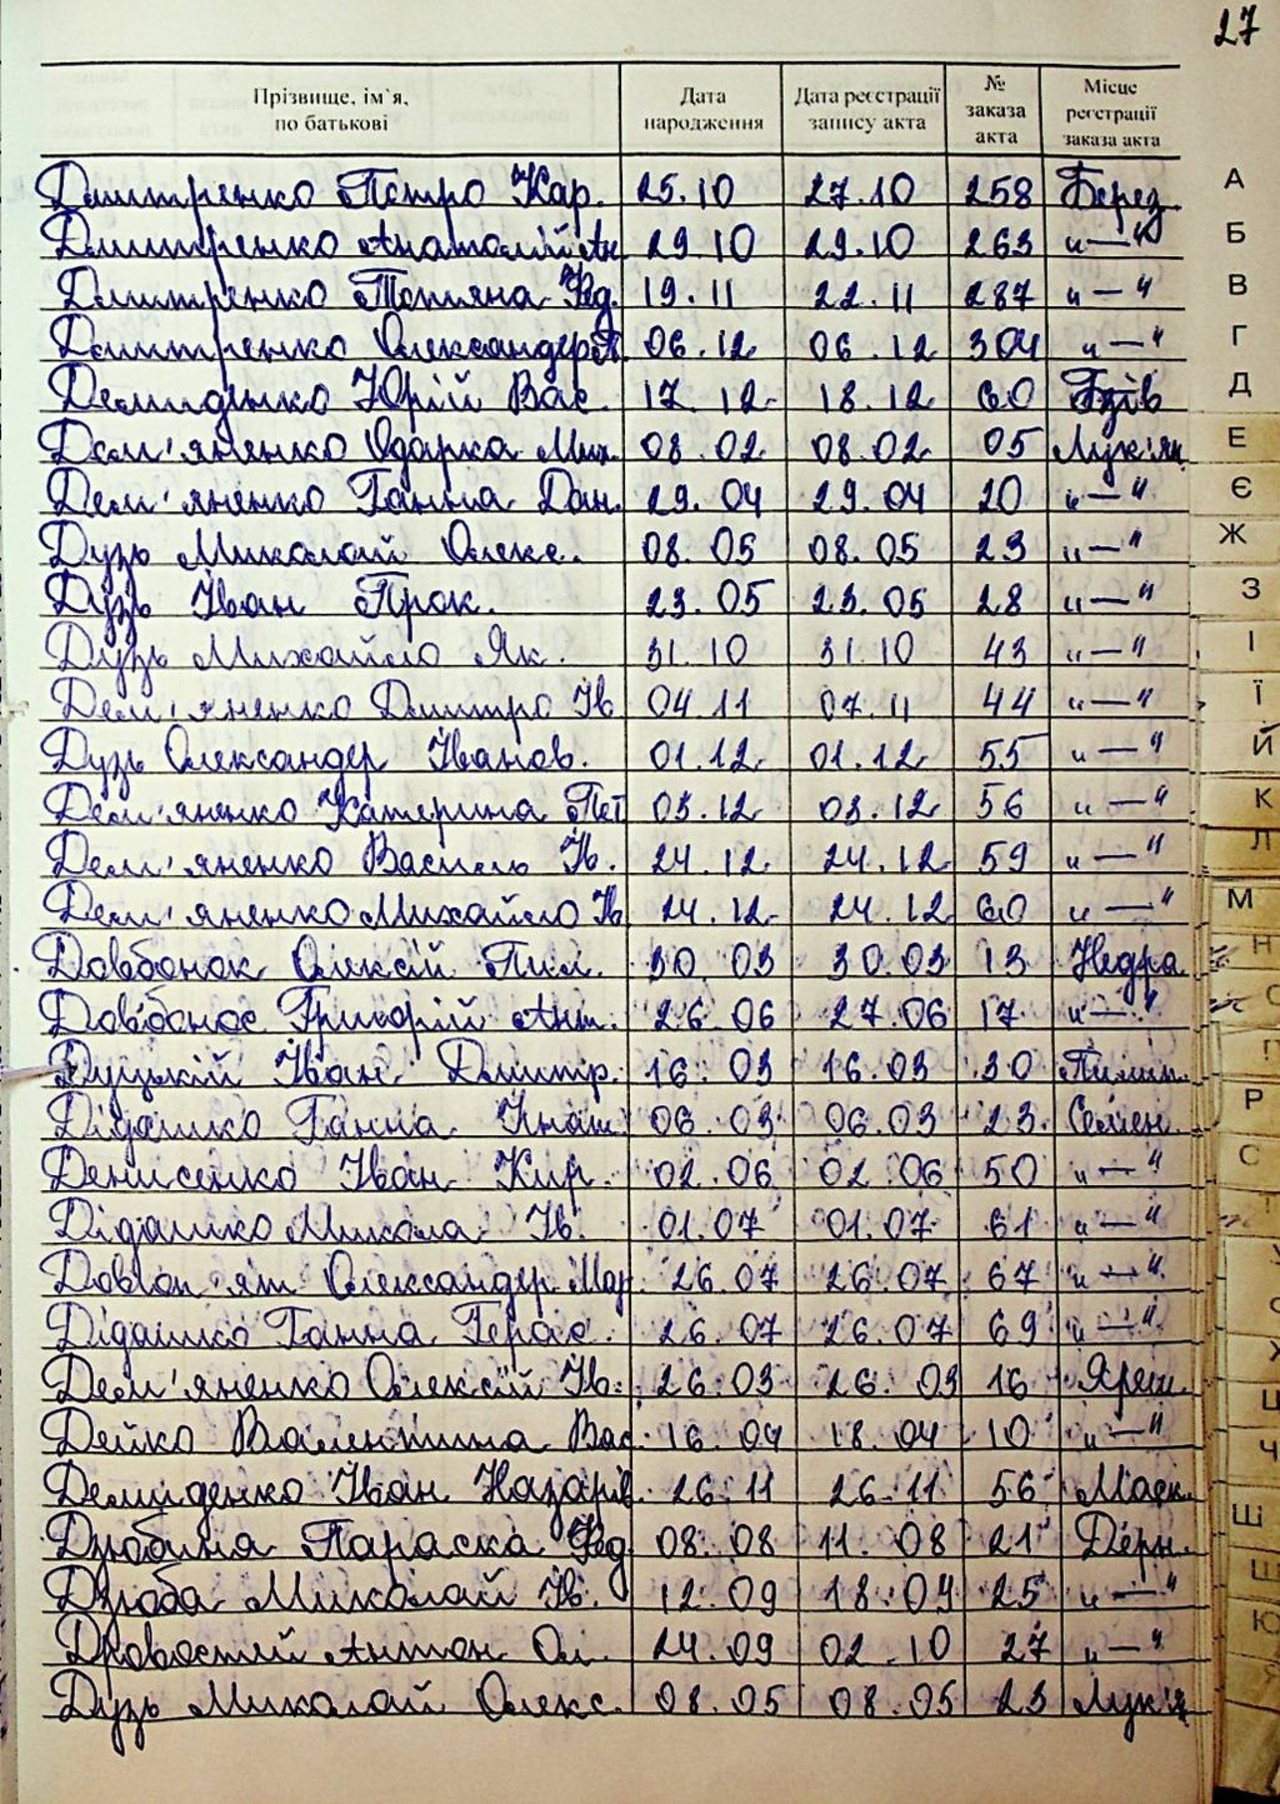 27
Прізвище, ім`я, по батькові Дата народження Дата реєстрації запису акта № заказа акта Місце реєстрації заказа акта
Дмитренко Петро Кар. 25.10 27.10 258 Берез.
Дмитренко Анатолій Ан 29.10 29.10 263 "—"
Дмитренко Тетяна Фед. 19.11 22.11 287 "—"
Дмитренко Олександер 06.12 06.12 304 "—"
Демиденко Юрій Вас. 17.12 18.12 60
Дем'яненко Одарка Мих. 08.02 08.02 05 Лук'ян
Дем'яненко Ганна Дан. 29.04 29.04 20 "—"
Дузь Миколай Олекс. 08.05 08.05 23 "—"
Дузь Іван Прок. 23.05 23.05 28 "—"
Дузь Михайло Як. 31.10 31.10 43 "—"
Дем'яненко Дмитро Ів 04.11 07.11 44 "—"
Дузь Олександер Іванов. 01.12 01.12 55 "—"
Дем'яненко Катерина Пет 03.12 03.12 56 "—"
Дем'яненко Василь Ів. 24.12 24.12 59 "—"
Дем'яненко Михайло Ів 24.12 24.12 60 "—"
Довбонок Олексій Пил. 30.03 30.03 13 Недра
Довбонос Григорій Ант. 26.06 27.06 17 "—"
Дуцький Іван Дмитр. 16.03 16.03 30 Пилип.
Дідашко Ганна Гнат. 06.03 06.03 23 Семен.
Денисенко Іван Кир. 02.06 02.06 50 "—"
Дідашко Микола Ів. 01.07 01.07 61 "—"
Довгоп'ят Олександер Мар 26.07 26.07 67 "—"
Дідашко Ганна Герас. 26.07 26.07 69 "—"
Дем'яненко Олексій Ів. 26.03 26.03 16 Яреш.
Дейко Валентина Вас. 16.04 18.04 10 "—"
Демиденко Іван Назарів. 26.11 26.11 56
Дзюбина Параска Фед. 08.08 11.08 21 Дерн.
Дзюба Миколай Ів. 12.09 18.09 25 "—"
Дровостий Антон Ол. 24.09 02.10 27 "—"
Дузь Миколай Олекс. 08.05 08.05 23 Лук'я
А
Б
В
Г
Д
Е
Є
Ж
З
І
Ї
Й
К
Л
М
Н
О
П
Р
С
Т
У
Х
Ц
Ч
Ш
Щ
Ю